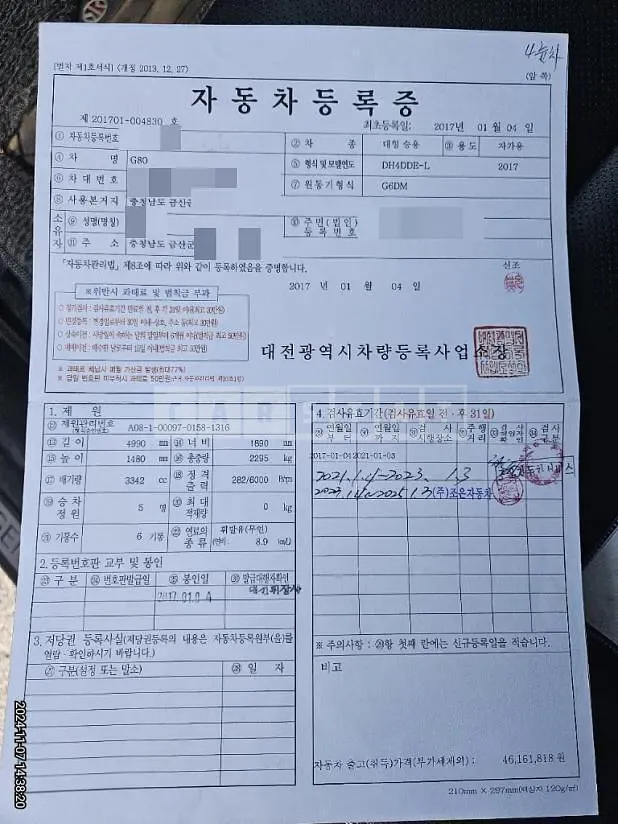 [별지 제1호서식] <개정 2013. 12. 27>
(앞 쪽)
자동차등록증
제 201701-004830 호
최초등록일: 2017년 01월 04일
① 자동차등록번호
② 차 종 대형 승용 ③ 용도 자가용
④ 차 명 G80
⑤ 형식 및 모델연도 DH4DDE-L 2017
⑥ 차대번호
⑦ 원동기형식 G6DM
⑧ 사용본거지 충청남도 금산군
소유자
⑨ 성명(명칭)
⑩ 주민(법인)등록번호
⑪ 주 소 충청남도 금산군
「자동차관리법」 제8조에 따라 위와 같이 등록하였음을 증명합니다.
신조
2017 년 01 월 04 일
※위반시 과태료 및 범칙금 부과
대전광역시차량등록사업소장
1. 제 원
⑫ 제원관리번호 A08-1-00097-0158-1316
⑬ 길이 4990 mm ⑭ 너비 1890 mm
⑮ 높이 1480 mm ⑯ 총중량 2295 kg
⑰ 배기량 3342 cc ⑱ 정격출력 282/6000
⑲ 승차정원 5 명 ⑳ 최대적재량 0 kg
기통수 6 기통 연료의 종류 휘발유(무연)
(연비: 8.9
2. 등록번호판 교부 및 봉인
구 분 번호판발급일 봉인일 발급대행자확인
3. 저당권 등록사실(저당권등록의 내용은 자동차등록원부(을)를 열람·확인하시기 바랍니다.)
구분(설정 또는 말소) 일 자
4. 검사유효기간(검사유효일 전·후 31일)
연월일부터 연월일까지 검사시행장소 주행거리 검사
2017-01-04 2021-01-03
2021.1.4-2023. 1.3
2023.1.4~2025 1.3 (주)조은자동차
※ 주의사항 : 항 첫째 란에는 신규등록일을 적습니다.
비고
자동차 출고(취득)가격(부가세제외) : 46,161,818 원
210mm × 297mm(백상지 120g/㎡)
2024-11-07 14:38:20